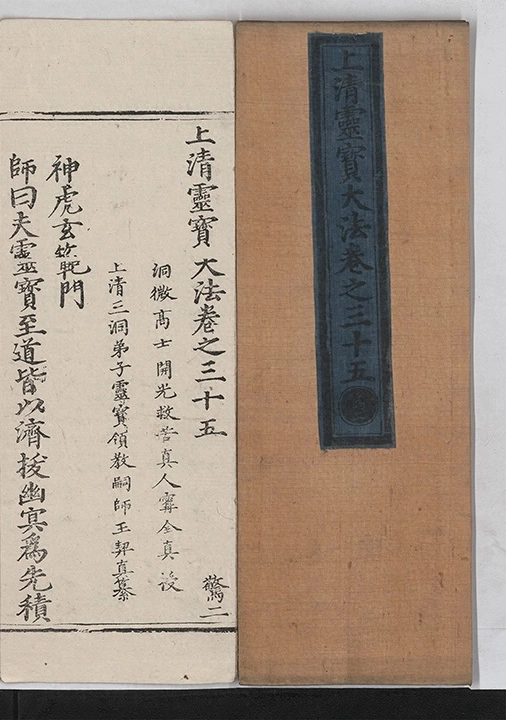 上清靈寶大法卷之三十五
上清靈寶大法卷之三十五
驚二
洞微高士開光救苦真人甯全真授
上清三洞弟子靈寶領教嗣師王契真纂
神虎玄範門
師曰夫靈寶至道皆以濟拔幽冥爲先積